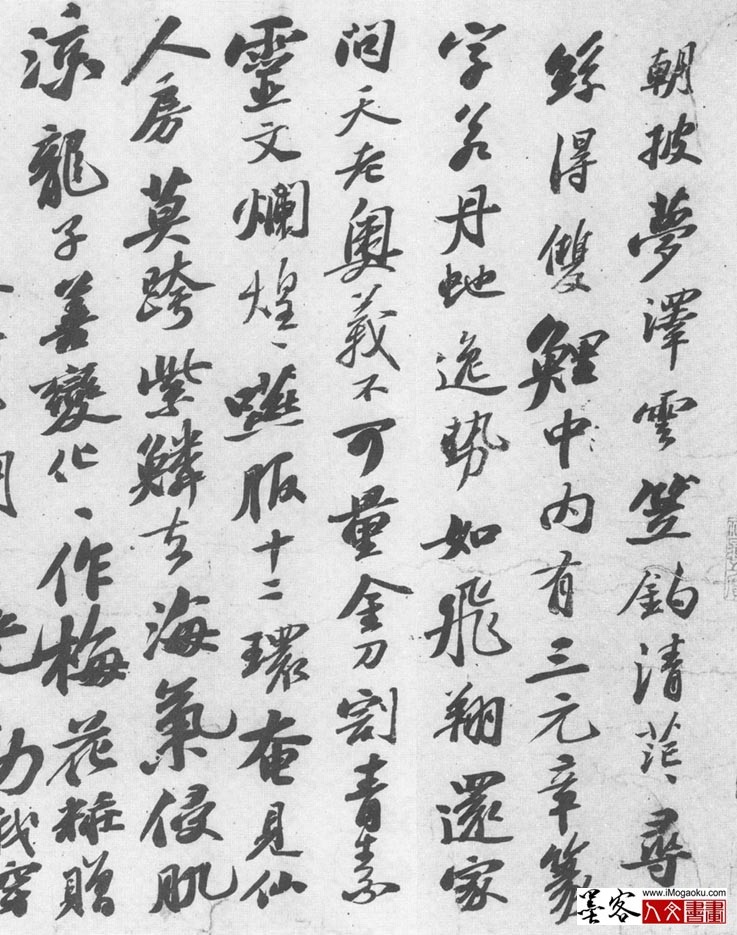 朝披夢澤雲笠釣清茫〻尋
絲得雙鯉中内有三元章篆
字若丹虵逸勢如飛翔還家
問天老奥義不可量金刀割青素
靈文爛煌〻嚥服十二環奄見仙
人房莫跨紫鱗去海氣侵肌
涼龍子善變化〻作梅花粧贈
我穿
墨客
www.iMogaoku.com
人文書畫